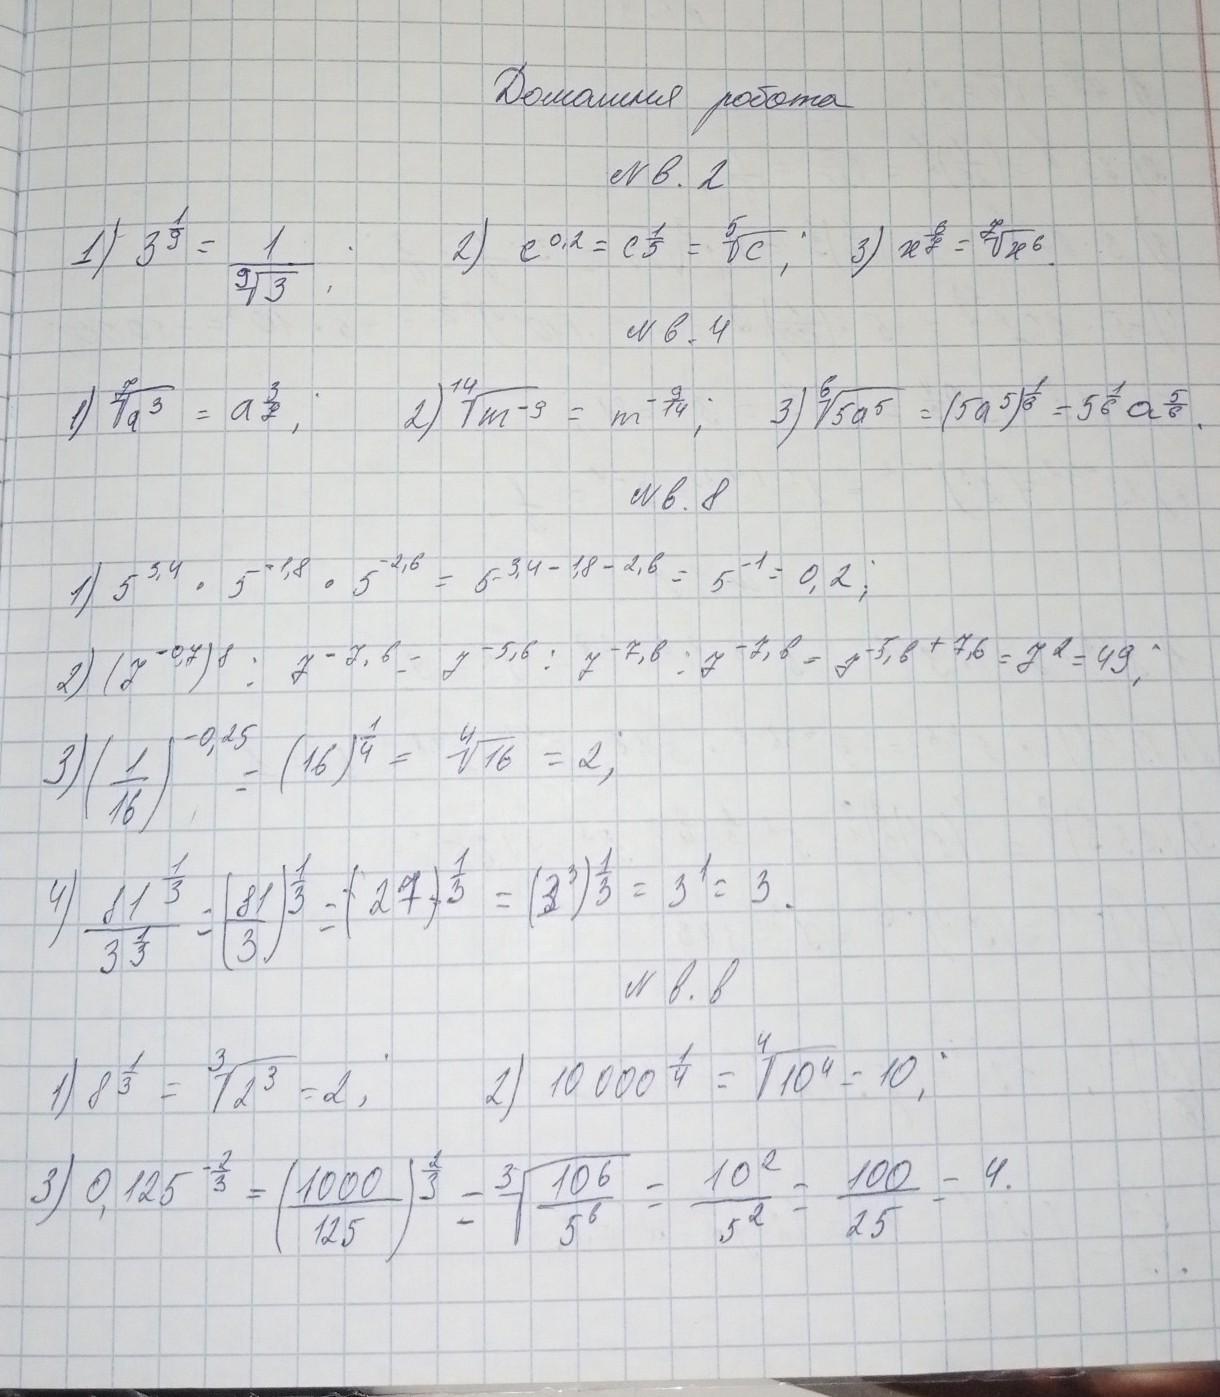 Домашня робота
№ 6.2
1) 3^(1/9) = 1/⁹√3 ; 2) c^0,2 = c^(1/5) = ⁵√c ; 3) x^(6/7) = ⁷√x^6.
№ 6.4
1) ⁷√a^3 = a^(3/7) ; 2) ¹⁴√m^-9 = m^(-9/14) ; 3) ⁶√5a^5 = (5a^5)^(1/6) = 5^(1/6) a^(5/6).
№ 6.8
1) 5^3,4 · 5^-1,8 · 5^-2,6 = 5^(3,4-1,8-2,6) = 5^-1 = 0,2;
2) (7^-0,7)^8 : 7^-7,6 = 7^-5,6 : 7^-7,6 : 7^-7,6 = 7^(-5,6+7,6) = 7^2 = 49;
3) (1/16)^-0,25 = (16)^(1/4) = ⁴√16 = 2;
4) 81^(1/3)/3^(1/3) = (81/3)^(1/3) = (27)^(1/3) = (3^3)^(1/3) = 3^1 = 3.
№ 6.6
1) 8^(1/3) = ³√2^3 = 2; 2) 10 000^(1/4) = ⁴√10^4 = 10;
3) 0,125^(-2/3) = (1000/125)^(2/3) = ³√(10^6/5^6) = 10^2/5^2 = 100/25 = 4.